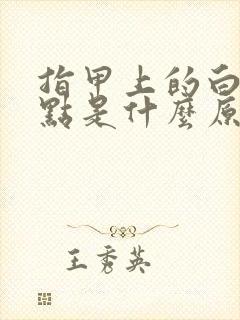 指甲上的白
點是什麼原
王秀英